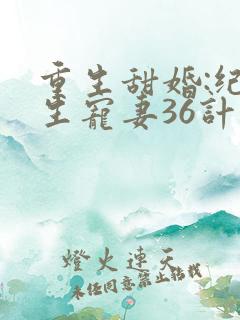 重生甜婚:纪
生宠妻36计
灯火连天
未经同意禁止转载